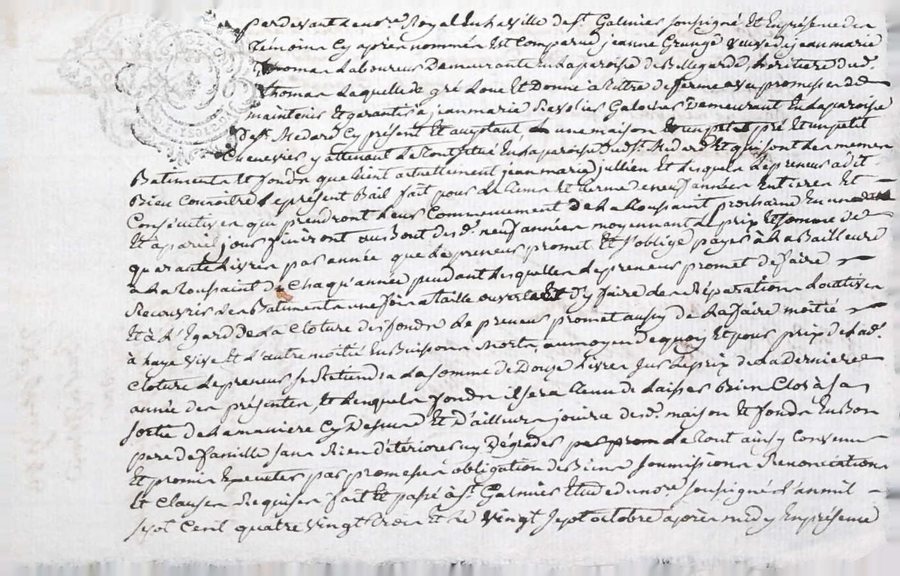 Pardevant le no.re Royal en la ville de St. Galmier soussigné Et En présence des
témoins cy après nommés Est Comparue jeanne Grange veuve de jean marie
thomas Laboureur Demeurante En la paroisse de Bellegarde heritiere dud.
thomas Laquelle de gré Loue Et Donne à titre de ferme avec promesse de
maintenir Et garantir à jean marie Galoises Demeurant En la paroisse
de St. Medard Cy présent Et acceptant une maison Et un petit pré Et un petit
Chenevier y attenant le tout situé En la paroisse dud. St. Medard Et qui sont les memes
Batiments Et fonds que tient actuellement jean marie jullien Et lesquels le preneur a dit
Bien Connoitre le présent Bail fait pour le tems Et terme de neuf années Entieres Et
Consécutives que prendront Leur Commencement de la toussaint prochaine
Et à pareil jour finiront au Bout desd. neuf années moyennant le prix Et somme de
quarante Livres par année que le preneur promet Et s'oblige payer à La Bailleure
à La toussaint de Chaqu'année pendant Lesquelles le preneur promet de faire
Recouvrir les Batiments une fois à taille ouverte Et d'y faire des Réparations
Et à L'Egard de La Cloture des fonds Le preneur promet aussy de La faire moitié
à haye Vive Et L'autre moitié En Buissons Morts, au moyen de quoy Et pour prix de Lad.
Cloture Le preneur se Retiendra La somme de Douze Livres sur Le prix de La derniere
année des présentes, Et Lesquels fonds il sera tenu de Laisser Bien Clos à sa
sortie de La maniere Cy Dessus Et D'ailleurs jouira desd. maison Et fonds En Bon
pere de famille sans Rien déteriorer ny Dégrader le tout ainsy Convenu
Et promis Executer par promesses obligation de Biens soumissions Renonciations
Et Clauses Requises fait Et passé à St. Galmier Etude du no.re soussigné L'an mil
sept Cent quatre vingt trois Et Le vingt sept octobre après midy En présence